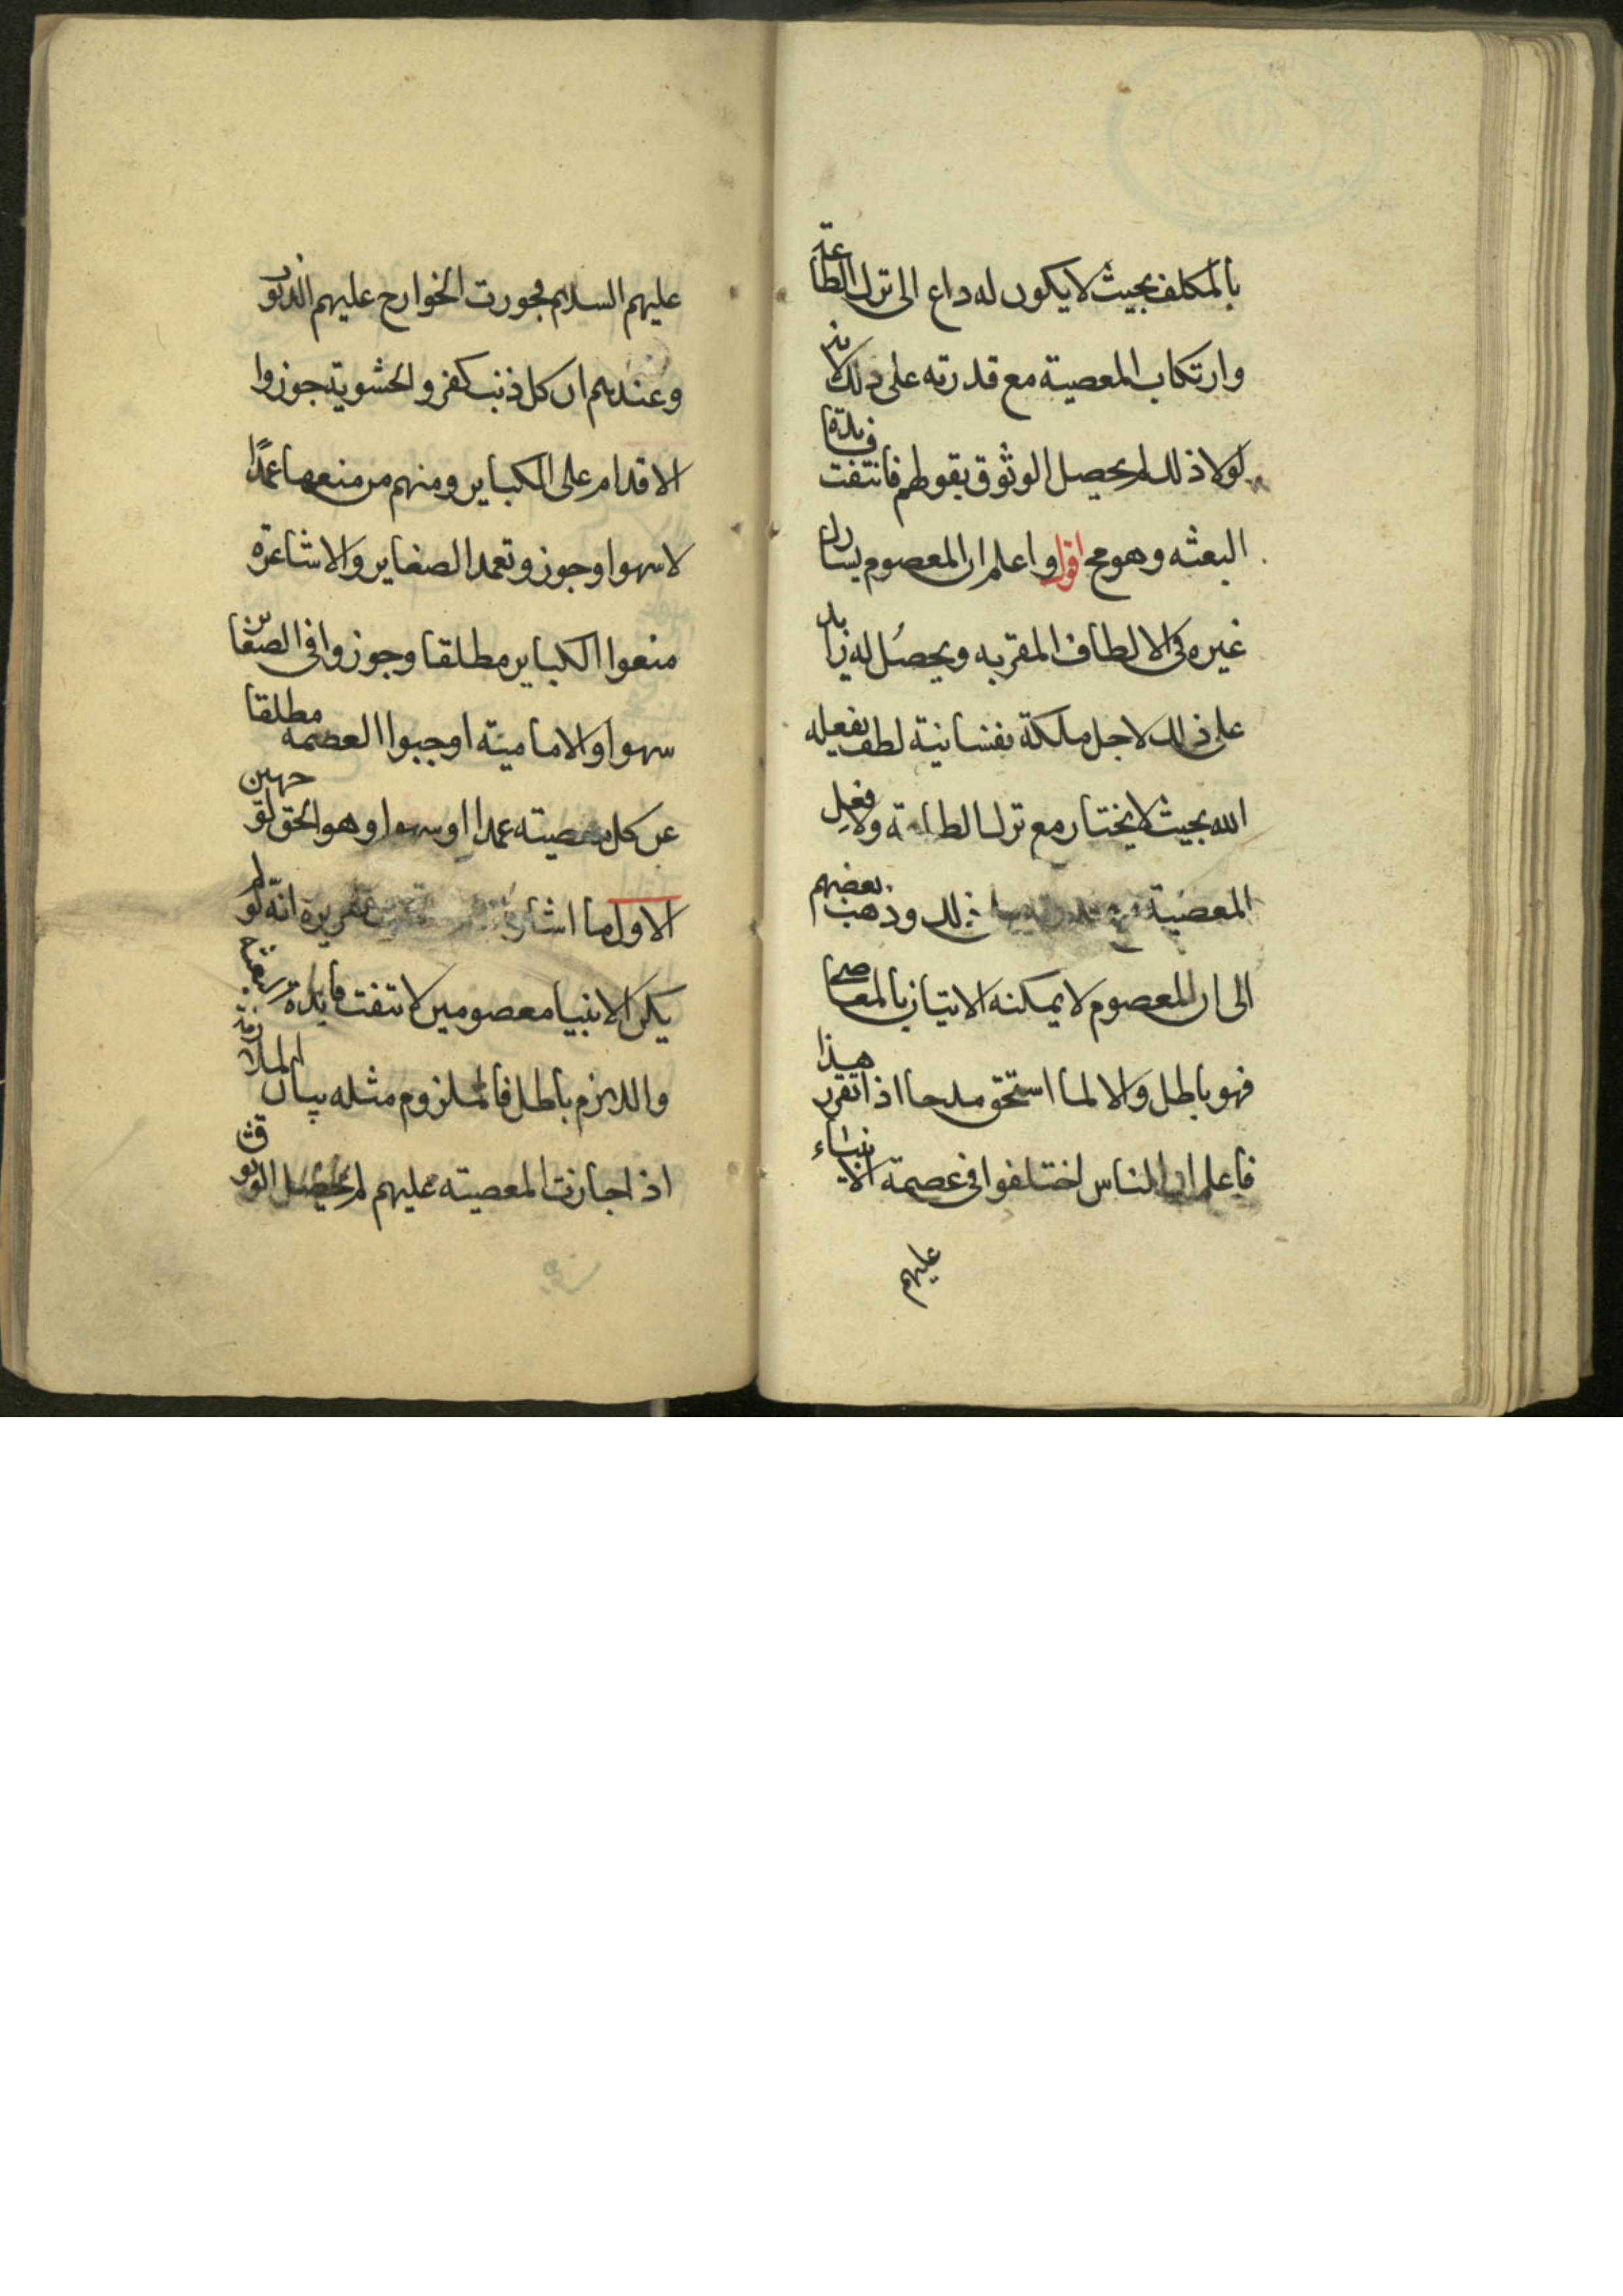 بالمكلف بحيث لا يكون له داع الى ترك الطاعة
وارتكاب المعصية مع قدرته على ذلك لانه
لولا ذلك لم يحصل الوثوق بقولهم فانتفت فايدة
البعثه وهو مح اقول واعلم ان المعصوم يشارك
غيره فى الالطاف المقربه ويحصل له زايد
على ذلك لاجل ملكة نفسانية لطف يفعله
الله بحيث لا يختار مع ترك الطاعة ولا فعل
المعصية ذلك وذهب بعضهم
الى ان المعصوم لا يمكنه الاتيان بالمعاصى
فهو باطل والا لما استحق مدحا اذا تقرر هذا
فاعلم ان الناس اختلفوا فى عصمة الانبياء
عليهم
عليهم السلام فجورت الخوارج عليهم الذنوب
وعندهم ان كل ذنب كفر والحشوية جوزوا
الاقدام على الكباير ومنهم من منعها عمدًا
لا سهوا وجوزو تعمد الصغاير والاشاعرة
منعوا الكباير مطلقا وجوزوا فى الصغاير
سهوا والامامية اوجبوا العصمة مطلقا
عن كل معصيته عمدا او سهوا وهو الحق لوجهين
الاول ما اشار تقريره انّه لو لم
يكن الانبيا معصومين لانتفت فايدة البعثة
واللازم باطل فالملزوم مثله بيان الملازمة
اذا جازت المعصيته عليهم لم يحصل الوثوق